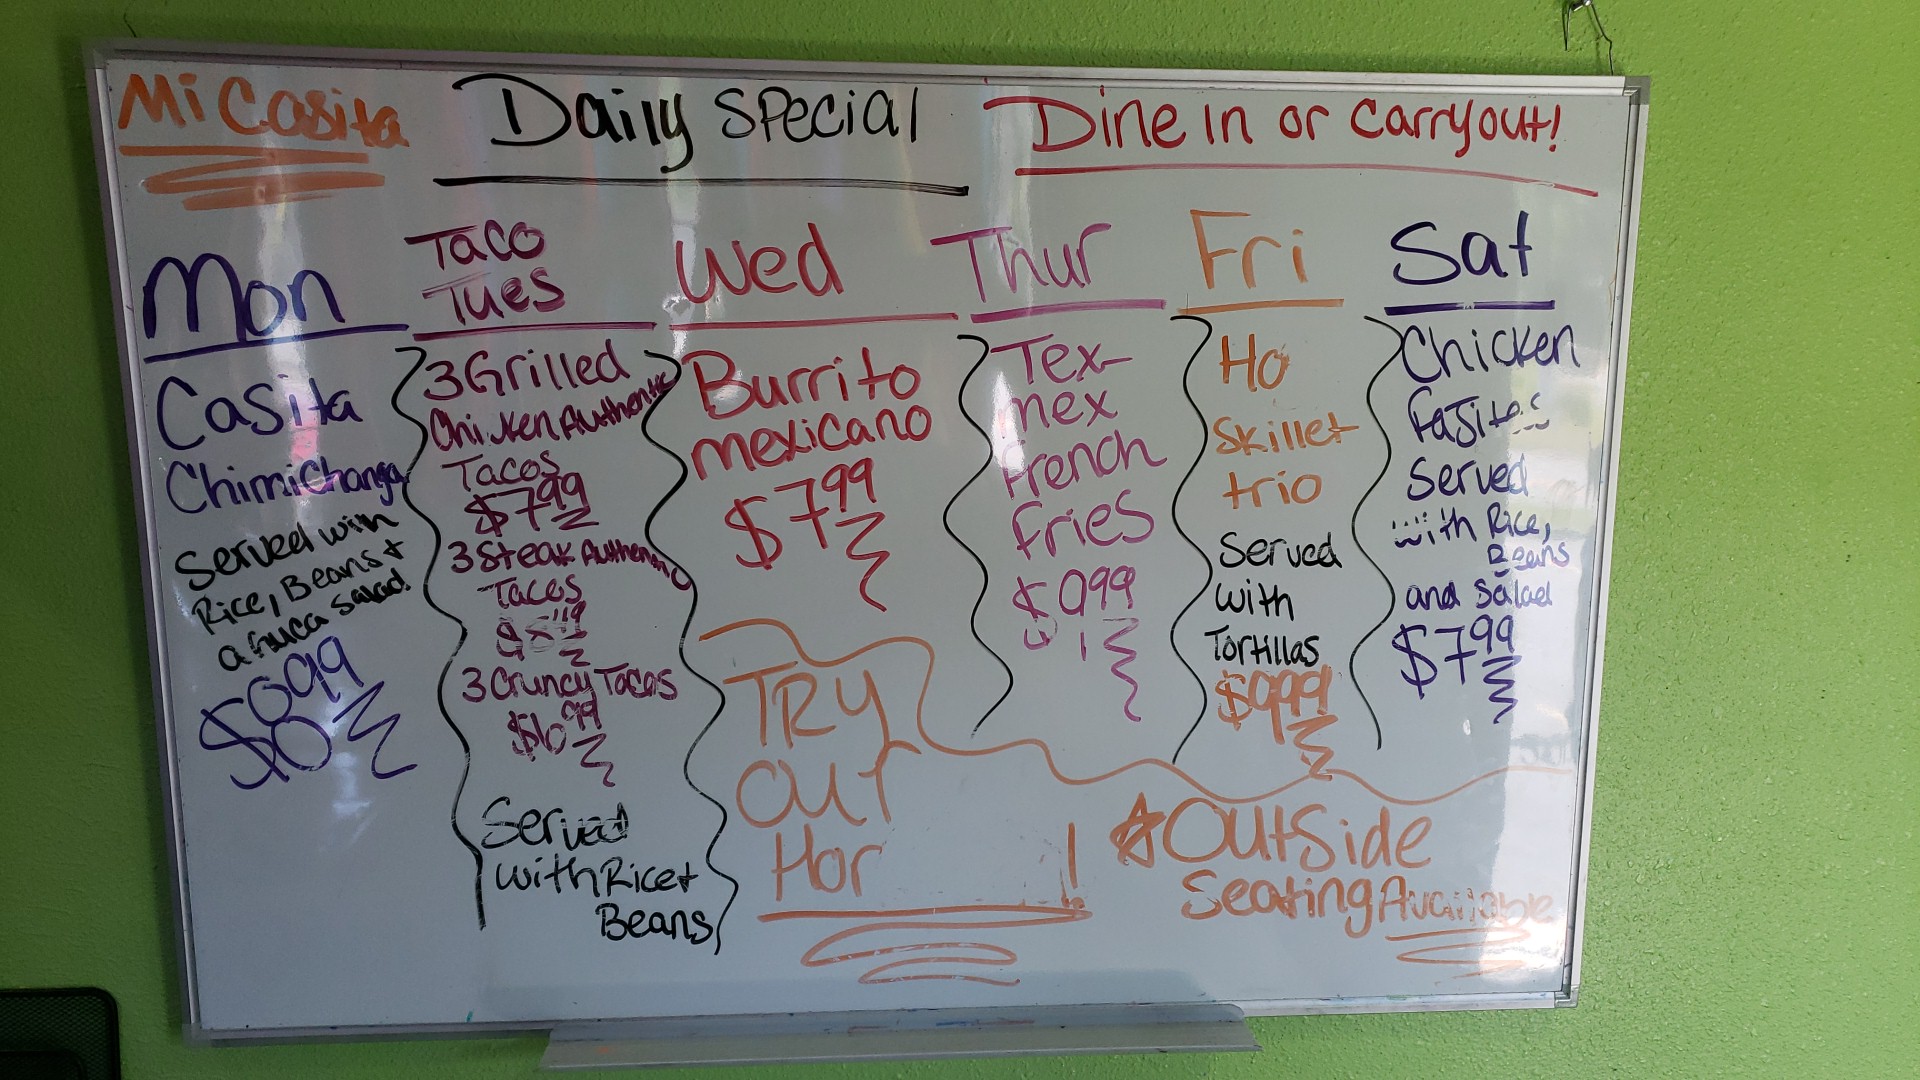 Mi Casita
Daily Special
Dine in or carryout!
Mon
Casita
Chimichanga
Served with
Rice, Beans +
a huca salad
Taco
Tues
3 Grilled
Chicken Authentic
Tacos
$7.99
3 Steak Authentic
Tacos
3 Cruncy Tacos
$6.99
Served
with Rice +
Beans
Wed
Burrito
mexicano
$7.99
Thur
Tex-
mex
French
Fries
Fri
Ho
Skillet
trio
Served
with
Tortillas
$9.99
Sat
Chicken
Fajitas
Served
with Rice,
Beans
and Salad
$7.99
TRY
OUT
Hor !
Outside
Seating Available